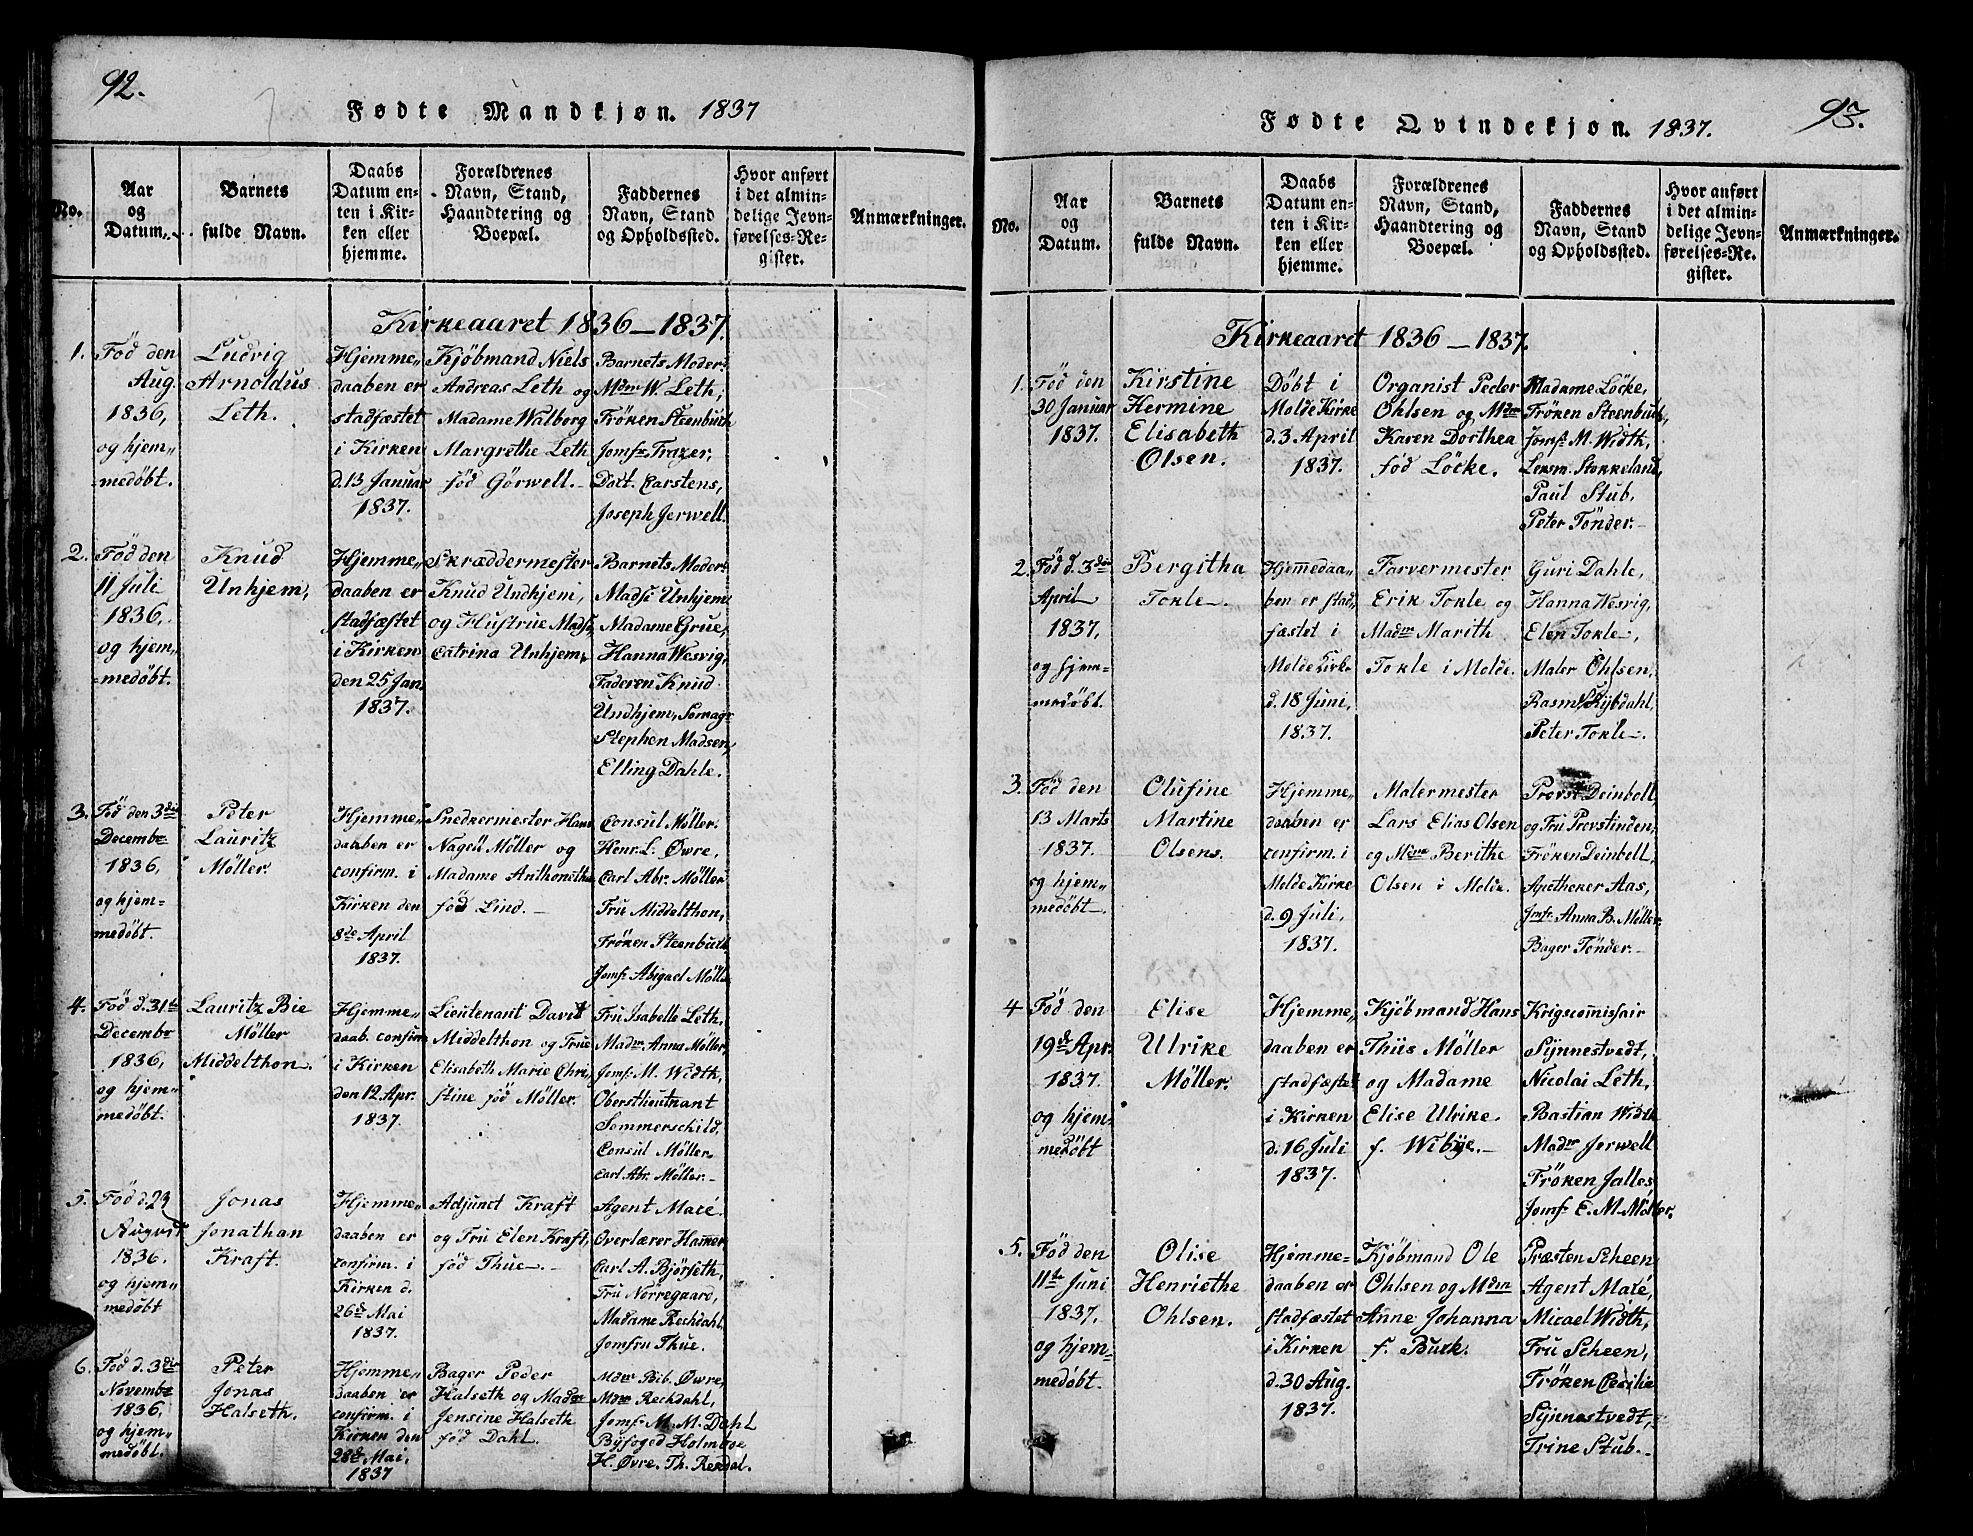 92.
Fødte Mandkjøn. 1837
No.
Aar
og
Datum.
Barnets
fulde Navn.
Daabs
Datum en-
ten i Kir-
ken eller
hjemme.
Forældrenes
Navn, Stand,
Haandtering og
Boepæl.
Faddernes
Navn, Stand
og Opholdssted.
Hvor anført
i det almin-
delige Jevn-
førelses-Re-
gister.
Anmærkninger.
Kirkeaaret 1836–1837.
1.
Fød den
Aug.
1836,
og hjem„
medöbt.
Ludvig
Arnoldus
Leth.
Hjemme„
daaben er
stadfæstet
i Kirken
d. 13 Januar
1837.
Kjöbmand Niels
Andreas Leth og
Madame Walborg
Margrethe Leth
föd Görwell.
Barnets Moder
Mdm W. Leth,
Fröken Steenbuch
Jomf: Trazer,
Doct. Carstens,
Joseph Jerwell.
2.
Föd den
11 Juli
1836,
og hjem„
medöbt.
Knud
Unhjem,
Hjemme„
daaben er
stadfæstet
i Kirken
den 25 Jan.
1837.
Skræddermester
Knud Undhjem,
og Hustrue Mads:
Catrina Unhjem,
Barnets Moder
Mads: Unhjem
Madame Grue,
Hanna Wesvig,
Faderen Knud
Undhjem,
Stephen Madsen,
Elling Dahle.
3.
Föd den 3die
Decembr
1836,
og hjem–
medöbt.
Peter
Lauritz
Möller.
Hjemme„
daaben er
confirm. i
Kirken den
8de April
1837.
Snedkermester Hans
Nagel Möller og
Madame Anthonette
föd Lind.
Consul Möller.
Henr. L. Øvre,
Carl Abr. Möller
Fru Middelthon,
Fröken Steenbuch
Jomf: Abigael Mölle
4.
Föd d. 31te
Decembr
1836,
og hjem„
medöbt.
Lauritz Bie
Möller
Middelthon.
Hjemme„
daab. confirm
i Kirken
den 12 Apr.
1837.
Lieutenant David
Middelthon og Frue
Elisabeth Marie Chri„
stine föd Möller.
Fru Isabelle Leth.
Madm Anna Möller,
Jomf: M. Width,
Oberstlieutnant
Sommerschild.
Consul Möller.
Carl Abr. Möller.
5.
Föd d. 23
August
1836.
og hjem„
medöbt
Jonas
Jonathan
Kraft.
Hjemme„
daaben er
confirm. i
Kirken d.
26de Mai
1837.
Adjunct Kraft
og Fru Elen Kraft,
föd Thue.
Agent Maré.
Overlærer Hammer
Carl A. Björseth,
Fru Norregaard,
Madame Reckdahl,
Jomfru Thue.
6.
Föd d. 3die
Novembr
1836,
og hjem„
medöbt.
Peter
Jonas
Halseth.
Hjemme„
daaben er
confirm. i
Kirken den
28de Mai,
1837
Bager Peder
Halseth og Madm
Jensine Halseth
föd Dahl.
Mdm Bib. Øvre,
Mdm Reckdahl,
Jomf: M. M. Dahl
Byfoged Holmboe
H. Øvre. Th. Rekdal.
93.
Fødte Qvindekjøn. 1837.
No.
Aar
og
Datum.
Barnets
fulde Navn.
Daabs
Datum en-
ten i Kir-
ken eller
hjemme.
Forældrenes
Navn, Stand,
Haandtering og
Boepæl.
Faddernes
Navn, Stand
og Opholdssted.
Hvor anført
i det almin-
delige Jevn-
førelses-Re-
gister.
Anmærkninger.
Kirkeaaret 1836–1837.
1.
Föd den
30 Januar
1837.
Kirstine
Hermine
Elisabeth
Olsen.
Döbt i
Molde Kirke
d. 3 April
1837.
Organist Peder
Ohlsen og Mdm
Karen Dorthea
föd Löcke.
Madame Löcke,
Fröken Steenbuch,
Jomf: M. Width,
Lensm. Stokkeland,
Paul Stub,
Peter Tönder.
2.
Föd d. 3die
April
1837,
og hjem–
medöbt.
Bergitha
Tokle.
Hjemedaa„
ben er stad„
fæstet i
Molde Kirk.
d. 18 Juni,
1837.
Farvermester
Erik Tokle og
Madm Marith
Tokle i Molde.
Guri Dahle,
Hanna Wesvig,
Elen Tokle,
Maler Öhlsen,
Rasm Rypdahl,
Peter Tokle.
3.
Föd den
13 Marts
1837.
og hjem„
medöbt.
Olufine
Martine
Olsens.
Hjemme„
daaben er
confirm. i
Molde Kirke
d. 9 Juli,
1837.
Malermester
Lars Elias Olsen
og Mdme Berithe
Olsen i Molde.
Provst Deinboll,
og Fru Provstinden,
Fröken Deinboll,
Apotheker Aas,
Jmf: Anna B. Möller
Bager Tönder.
4
Föd den
19de Apr.
1837.
og hjem,
medöbt
Elise
Ulrike
Möller.
Hjemme„
daaben er
stadfæstet
i Kirken
d. 16 Juli
1837.
Kjöbmand Hans
Thiis Möller
og Madame
Elise Ulrike
f. Wibye.
Krigscommissair
Synnestvedt,
Nicolai Leth,
Bastian Width
Madm Jerwell
Fröken Jalles
Jomf: E. M. Möller.
5.
Föd den
11te Juni
1837.
og hjem–
medöbt.
Olise
Henriethe
Ohlsen.
Hjemme–
daaben er
stadfæstet
i Kirken
d. 30 Aug.
1837.
Kjöbmand Ole
Ohlsen og Mdm
Anne Johanna
f. Buck.
Præsten Scheen
Agent Maré,
Micael Width,
Fru Scheen,
Fröken Cecilie
Synnestvedt,
Trine Stub.